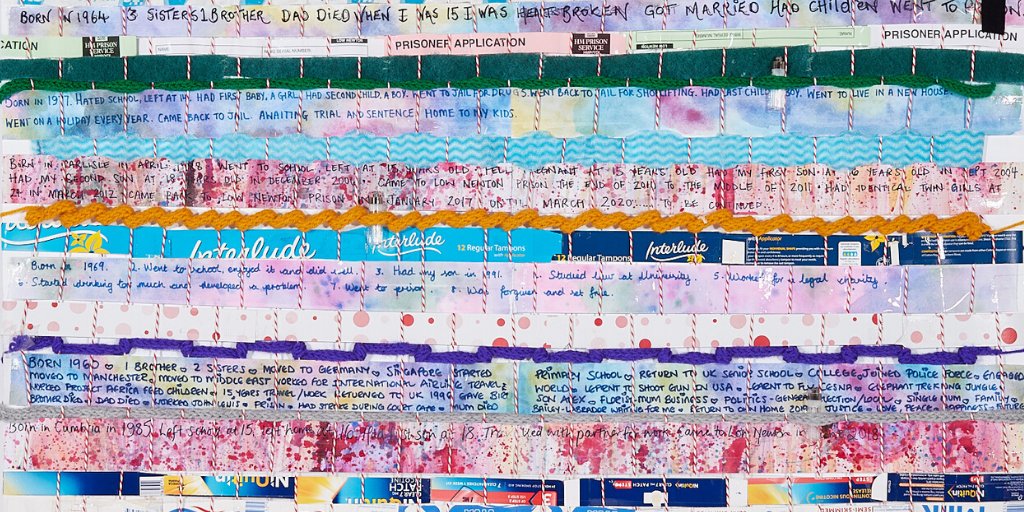 BORN IN 1964 3 SISTERS 1 BROTHER DAD DIED WHEN I WAS 15 I WAS HEARTBROKEN GOT MARRIED HAD CHILDREN WENT TO
CATION HM PRISON SERVICE NAME PRISONER APPLICATION PRISONER APPLICATION
BORN IN 1977. HATED SCHOOL, LEFT AT 14. HAD FIRST BABY, A GIRL, HAD SECOND CHILD, A BOY. WENT TO JAIL FOR DRUGS. WENT BACK TO JAIL FOR SHOPLIFTING. HAD LAST CHILD BOY. WENT TO LIVE IN A NEW HOUSE.
WENT ON A HOLIDAY EVERY YEAR. CAME BACK TO JAIL. AWAITING TRIAL AND SENTENCE. HOME TO MY KIDS.
BORN IN CARLISLE IN APRIL 1988 WENT TO SCHOOL LEFT AT 15 YEARS OLD. FELL PREGNANT AT 15 YEARS OLD HAD MY FIRST SON 16 YEARS OLD IN SEPT 2004.
HAD MY SECOND SON AT 18 YEARS OLD IN DECEMBER 2006. CAME TO LOW NEWTON PRISON THE END OF 2010 TO THE MIDDLE OF 2011 HAD IDENTICAL TWIN GIRLS AT
24 IN MARCH 2012 CAME BACK TO LOW NEWTON PRISON IN JANUARY 2017 UNTIL MARCH 2020.... TO BE CONTINUED...
Interlude Interlude 12 Regular Tampons with Applicator Interlude 12 Regular Tampons with Applicator
Born in 1969. 2. Went to school, enjoyed it and did well 3. Had my son in 1991. 4. Studied law at University. 5. Worked for a legal charity.
6. Started drinking too much and developed a problem 7. Went to prison 8. Was forgiven and set free.
BORN 1960 1 BROTHER 2 SISTERS MOVED TO GERMANY SINGAPORE STARTED PRIMARY SCHOOL RETURN TO UK SENIOR SCHOOL COLLEGE, JOINED POLICE FORCE ENGAGED
MOVED TO MANCHESTER, MOVED TO MIDDLE EAST WORKED FOR INTERNATIONAL AIRLINE TRAVEL WORLD LEARNT TO SHOOT GUN IN USA LEARNT TO FLY CESNA ELEPHANT TREKKING JUNGLE
WORKED PROJECT AFRICA FEED CHILDREN 15 YEARS TRAVEL/WORK RETURNED TO UK 1996 GAVE BIRTH SON ALEX FLORIST MUM BUSINESS POLITICS GENERAL ELECTION/LOCAL SINGLE MUM FAMILY
BROTHER DIED DAD DIED WORKED JOHN LEWIS PRISON HAD STROKE DURING COURT CASE MUM DIED BAILEY LABRADOR WAITING FOR ME RETURN TO OWN HOME 2019 JUSTICE LOVE, PEACE HAPPINESS FUTURE
Born in Cumbria in 1985. Left school at 15, left home at 16. Had son at 18. with partner for
NiQuitin NiQuitin CLEAR PATCH NICOTINE NiQuitin